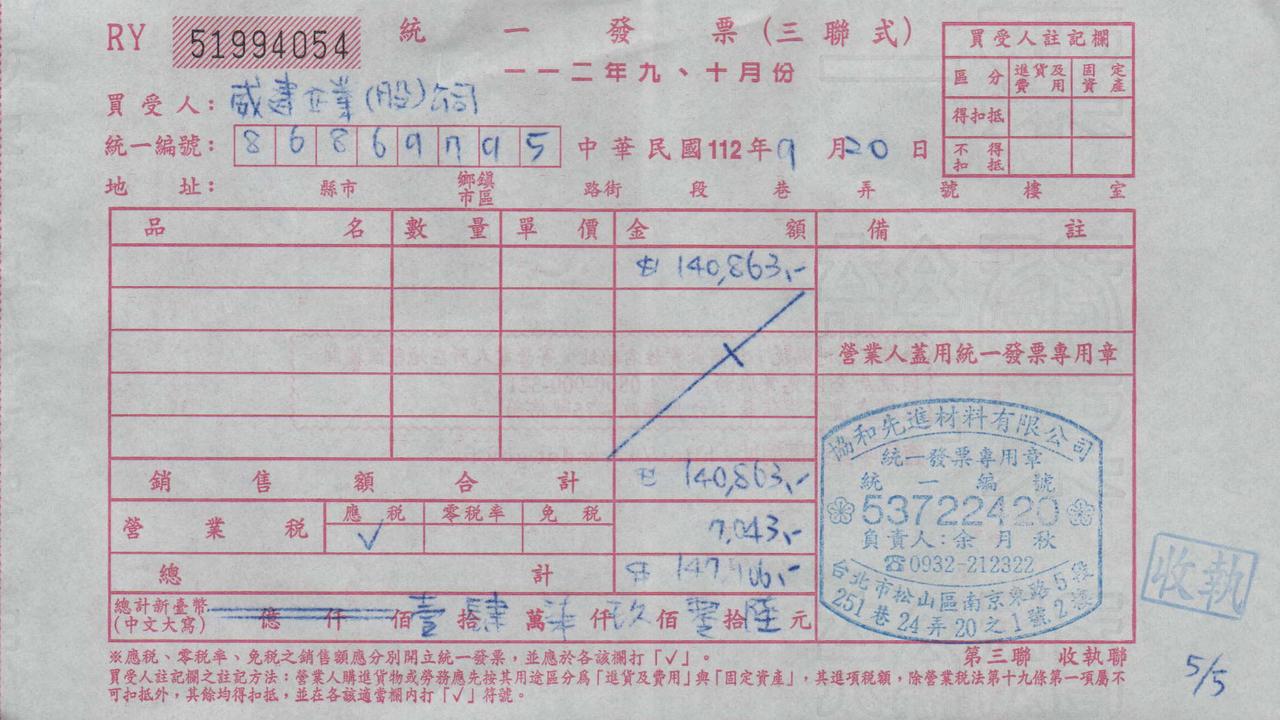 RY 51994054 統一發票(三聯式)
一一二年九、十月份
買受人註記欄
區分 進貨及費用 固定資產
得扣抵
不得扣抵
買受人: 威建企業(股)公司
統一編號: 86869795 中華民國112年9月20日
地址: 縣市 鄉鎮市區 路街 段 巷 弄 號 樓 室
品名 數量 單價 金額 備註
$ 140,863.-
營業人蓋用統一發票專用章
銷售額合計 $ 140,863.-
營業稅 應稅 零稅率 免稅
✓ 7,043.-
總計 $ 147,906.-
總計新臺幣(中文大寫) 億仟佰壹拾肆萬柒仟玖佰零拾陸元
協和先進材料有限公司
統一發票專用章
統一編號
53722420
負責人:余月秋
☎0932-212322
台北市松山區南京東路5段
251巷24弄20之1號2樓
收執
第三聯 收執聯
※應稅、零稅率、免稅之銷售額應分別開立統一發票,並應於各該欄打「✓」。
買受人註記欄之註記方法:營業人購進貨物或勞務應先按其用途區分為「進貨及費用」與「固定資產」,其進項稅額,除營業稅法第十九條第一項屬不
可扣抵外,其餘均得扣抵,並在各該適當欄內打「✓」符號。
5/5